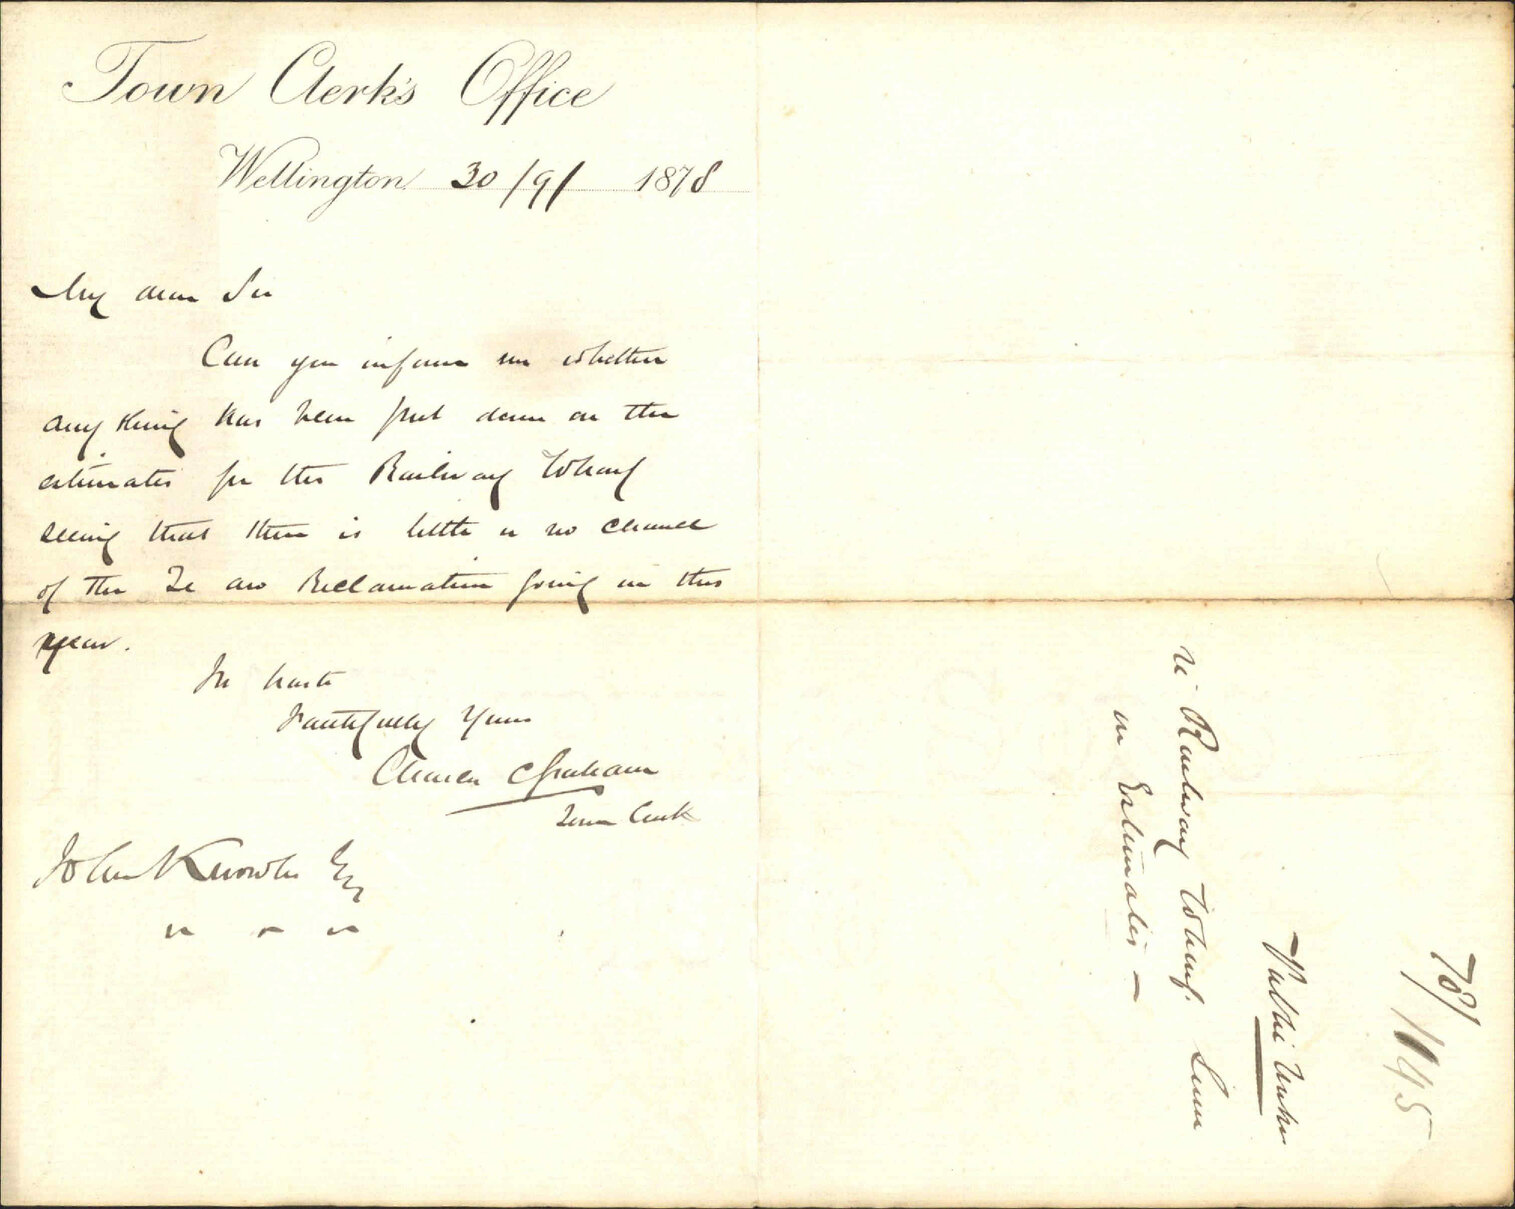 Town Clerk's Office
Wellington 30/9/ 1878
My dear Sir
Can you inform me whether
anything has been put down on the
estimates for the Railway Wharf
seeing that there is little or no chance
of the Te aro Reclamation going in this
year.
In haste
Faithfully Yours
Charles C Graham
Town Clerk
John Knowles Esq
78/1145
Public Works
re Railway Wharf. Sum
on Estimates —